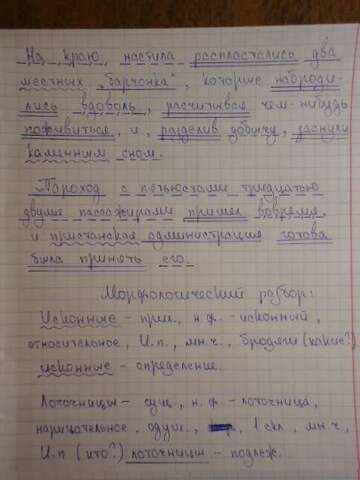 На краю настила распластались два
местных "барчонка", которые наброди-
лись вдоволь, расчитывая чем-нибудь
поживиться, и, разделив добычу, заснули
каменным сном.
Пароход с пятьюстами тридцатью
двумя пассажирами пришел вовремя,
и пристанская администрация готова
была принять его.
Морфологический разбор:
Исконные - прил., н.ф. - исконный,
относительное, И.п., мн.ч., бродяги (какие?)
исконные - определение.
Лоточницы - сущ., н.ф. - лоточница,
нарицательное, одуш., 1 скл., мн.ч.,
И.п (кто?) лоточницы - подлеж.